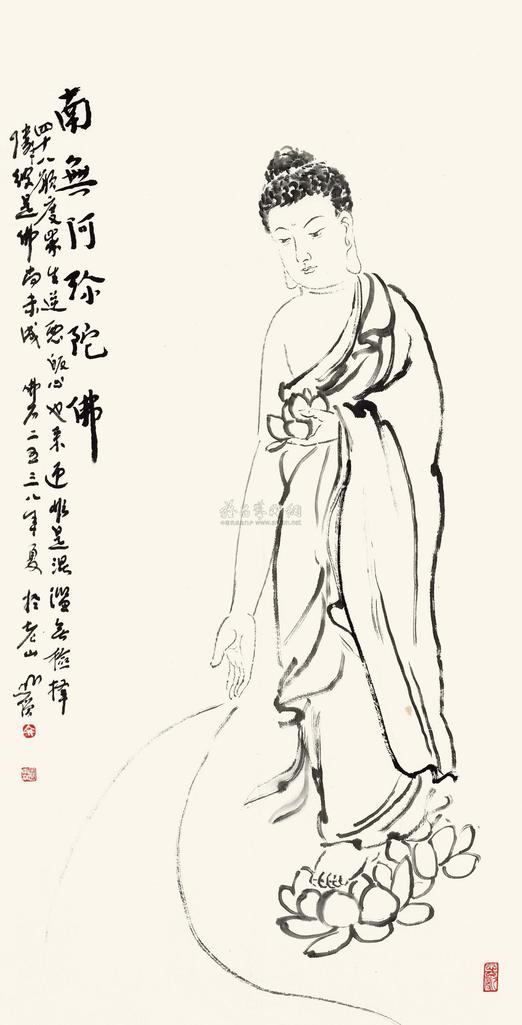 南無阿弥陀佛
四十八願度眾生逆惡皈心也來迎如是混濫無檢擇
彼是佛尚未成 佛元二五三八年夏 於老山